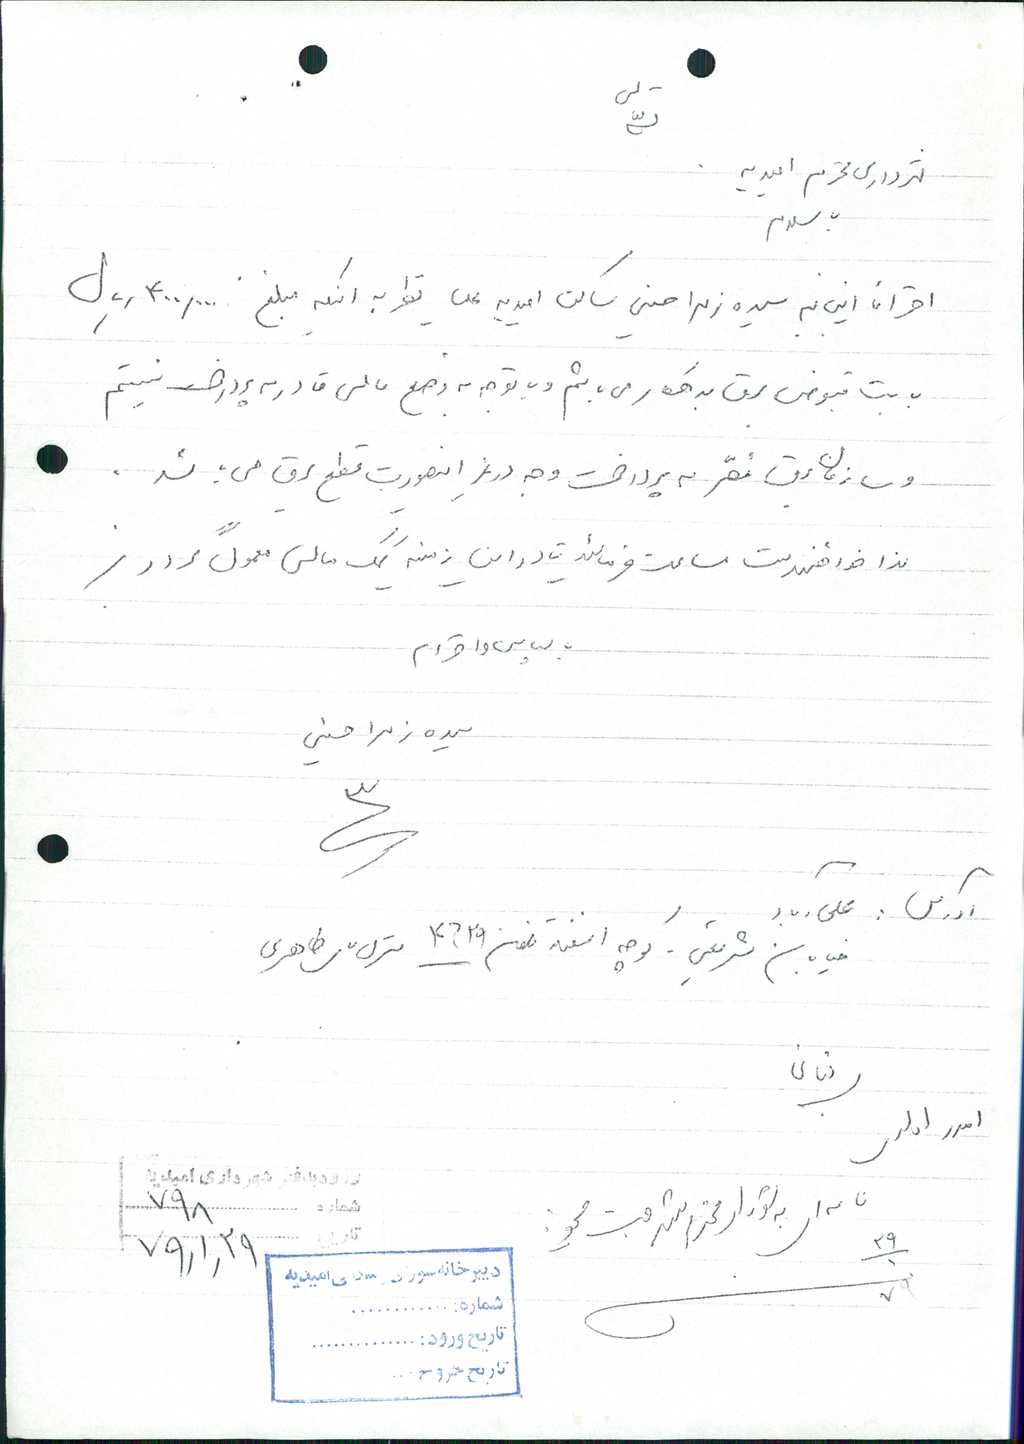 شهرداری محترم امیدیه
با سلام
احتراماً اینجانبه سیده زهرا حسنی ساکن امیدیه علیا نظر به اینکه مبلغ ۴۰۰/۰۰۰ ریال
بابت قبوض برق بدهکار می باشم و با توجه به وضع مالی قادر به پرداخت نیستم
و سازمان برق مصّر به پرداخت وجه در غیر اینصورت قطع برق می باشد .
لذا خواهشمند است مساعدت فرمائید تا در این زمینه کمک مالی معمول گردد
با سپاس و احترام
سیده زهرا حسنی
آدرس :
خیابان شریعتی - کوچه تلفن ۴۶۲۹ منزل طاهری
امور اداری
نامه ای به شورای محترم شهر جهت
۲۹/۱/۷۹
ورود به دفتر شهرداری امیدیه
شماره ۷۹۸
تاریخ ۷۹/۱/۲۹
دبیرخانه شورای اسلامی امیدیه
شماره: ............
تاریخ ورود: ..............
تاریخ خروج ...